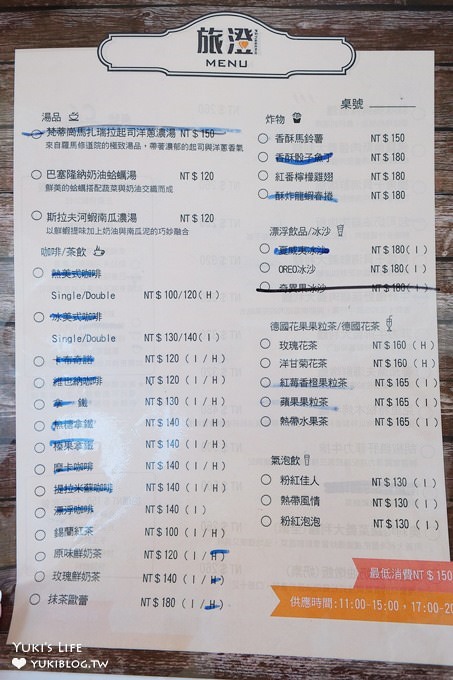 旅澄
MENU
桌號
湯品
梵蒂崗馬扎瑞拉起司洋蔥濃湯 NT$150
來自羅馬修道院的極致湯品，帶著濃郁的起司與洋蔥香氣
巴塞隆納奶油蛤蠣湯 NT$120
鮮美的蛤蠣搭配蔬菜與奶油交織而成
斯拉夫河蝦南瓜濃湯 NT$120
以鮮蝦提味加上奶油與南瓜泥的巧妙融合
咖啡/茶飲
熱美式咖啡
Single/Double NT$100/120(H)
冰美式咖啡
Single/Double NT$130/140(I)
卡布奇諾 NT$120 (I/H)
維也納咖啡 NT$120 (I/H)
拿鐵 NT$130 (I/H)
焦糖拿鐵 NT$140 (I/H)
榛果拿鐵 NT$140 (I/H)
摩卡咖啡 NT$140 (I/H)
提拉米蘇咖啡 NT$140 (I/H)
漂浮咖啡 NT$140 (I)
錫蘭紅茶 NT$100 (I/H)
原味鮮奶茶 NT$120 (I/H)
玫瑰鮮奶茶 NT$140 (I/H)
抹茶歐蕾 NT$180 (I/H)
炸物
香酥馬鈴薯 NT$150
香酥骰子魚丁 NT$180
紅番檸檬雞翅 NT$180
酥炸龍蝦春捲 NT$180
漂浮飲品/冰沙
夏威夷冰沙 NT$180(I)
OREO冰沙 NT$180(I)
奇異果冰沙 NT$180(I)
德國花果果粒茶/德國花茶
玫瑰花茶 NT$160 (H)
洋甘菊花茶 NT$160 (H)
紅莓香橙果粒茶 NT$165 (I)
蘋果果粒茶 NT$165 (I)
熱帶水果茶 NT$165 (I)
氣泡飲
粉紅佳人 NT$130 (I)
熱帶風情 NT$130 (I)
粉紅泡泡 NT$130 (I)
最低消費NT$150
供應時間:11:00-15:00，17:00-20
YUKI'S LIFE
YUKIBLOG.TW